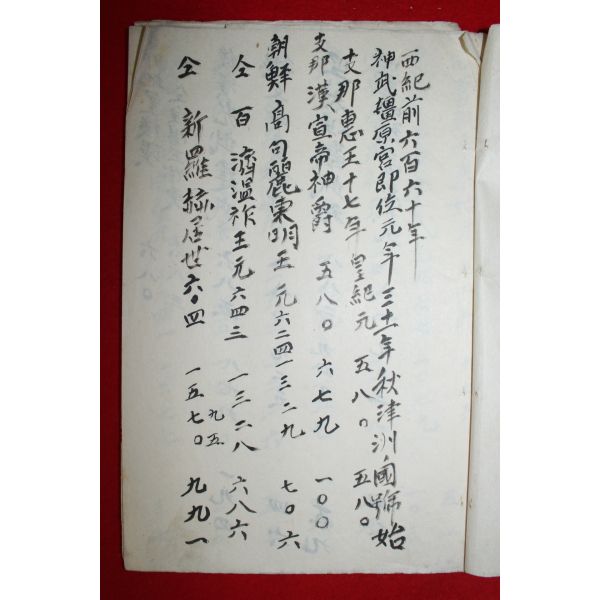 西紀前六百六十年
神武橿原宮即位元年 三十一年秋津洲國號始
支那惠王十七年 皇紀元 五八〇 五八〇
支那漢宣帝神爵 五八〇 六七九 一〇〇
朝鮮高句麗東明王元六二四 一三二九 七〇六
仝百濟温祚王元六四三 一三二八 六八六
仝新羅赫居世六〇四 一五七〇 九九一
九五